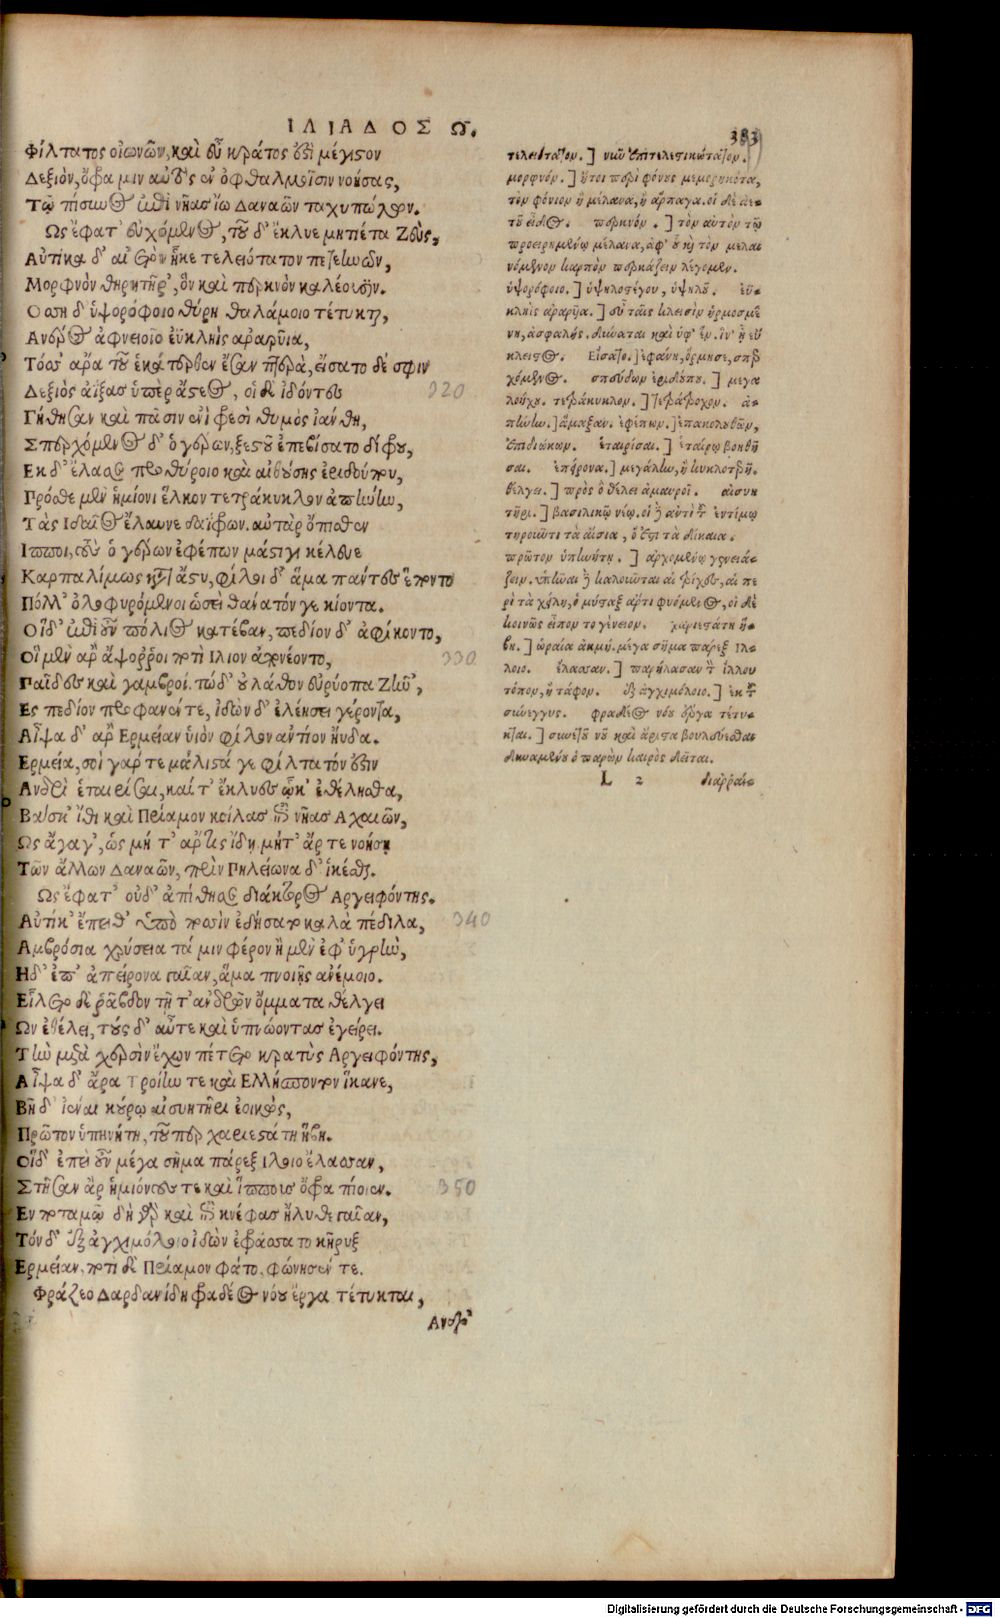 ΙΛΙΑΔΟΣ Ω.
383
Φίλτατος οἰωνῶν, καὶ εὗ κράτος ἐστὶ μέγιστον
Δεξιὸν, ὄφρα μιν αὐτὸς ἐν ὀφθαλμοῖσιν νοήσας,
Τῷ πίσυνος ἐπὶ νῆας ἴω Δαναῶν ταχυπώλων.
Ὣς ἔφατ' εὐχόμενος, τοῦ δ' ἔκλυε μητίετα Ζεὺς,
Αὐτίκα δ' αἰετὸν ἧκε τελειότατον πετεηνῶν,
Μορφνὸν θηρητῆρ', ὃν καὶ περκνὸν καλέουσιν.
Οση δ' ὑψορόφοιο θύρη θαλάμοιο τέτυκται,
Ανέρος ἀφνειοῖο ἐϋκληῒς ἀραρυῖα,
Τόσσ' ἄρα τοῦ ἑκάτερθεν ἔσαν πτερὰ, εἴσατο δέ σφιν
Δεξιὸς ἀΐξας ὑπὲρ ἄστεος, οἱ δὲ ἰδόντες
Γήθησαν καὶ πᾶσιν ἐνὶ φρεσὶ θυμὸς ἰάνθη,
Σπερχόμενος δ' ὁ γέρων, ξεστοῦ ἐπεβήσατο δίφρου,
Εκ δ' ἔλασε προθύροιο καὶ αἰθούσης ἐριδούπου,
Πρόσθε μὲν ἡμίονοι ἕλκον τετράκυκλον ἀπήνην,
Τὰς Ιδαῖος ἔλαυνε δαΐφρων. αὐτὰρ ὄπισθεν
Ιπποι, τοὺς ὁ γέρων ἐφέπων μάστιγι κέλευε
Καρπαλίμως κατὰ ἄστυ, φίλοι δ' ἅμα πάντες ἕποντο
Πόλλ' ὀλοφυρόμενοι ὡσεὶ θάνατόν γε κίοντα.
Οἱ δ' ἐπεὶ οὖν πόλιος κατέβαν, πεδίον δ' ἀφίκοντο,
Οἱ μὲν ἄρ' ἄψορροι ποτὶ Ιλιον ἀπονέοντο,
Παῖδες καὶ γαμβροί. τώ δ' οὐ λάθον εὐρύοπα Ζῆν',
Ες πεδίον προφανέντε, ἰδὼν δ' ἐλέησε γέροντα,
Αἶψα δ' ἄρ' Ερμείαν υἱὸν φίλον ἀντίον ηὔδα.
Ερμεία, σοὶ γάρ τε μάλιστά γε φίλτατόν ἐστιν
Ανδρὶ ἑταιρίσσαι, καί τ' ἔκλυες ᾧ κ' ἐθέλησθα,
Βάσκ' ἴθι καὶ Πρίαμον κοίλας ἐπὶ νῆας Αχαιῶν,
Ως ἄγαγ', ὡς μή τ' ἄρ τις ἴδῃ μήτ' ἄρ τε νοήσῃ
Τῶν ἄλλων Δαναῶν, πρὶν Πηλείωνα δ' ἱκέσθαι.
Ως ἔφατ' οὐδ' ἀπίθησε διάκτορος Αργειφόντης.
Αὐτίκ' ἔπειθ' ὑπὸ ποσὶν ἐδήσατο καλὰ πέδιλα,
Αμβρόσια χρύσεια τά μιν φέρον ἠμὲν ἐφ' ὑγρὴν,
Ηδ' ἐπ' ἀπείρονα γαῖαν, ἅμα πνοιῇς ἀνέμοιο.
Εἵλετο δὲ ῥάβδον τῇ τ' ἀνδρῶν ὄμματα θέλγει
Ων ἐθέλει, τοὺς δ' αὖτε καὶ ὑπνώοντας ἐγείρει.
Τὴν μετὰ χερσὶν ἔχων πέτετο κρατὺς Αργειφόντης,
Αἶψα δ' ἄρα Τροίην τε καὶ Ελλήσποντον ἵκανε,
Βῆ δ' ἰέναι κούρῳ αἰσυητῆρι ἐοικὼς,
Πρῶτον ὑπηνήτῃ, τοῦπερ χαριεστάτη ἥβη.
Οἱ δ' ἐπεὶ οὖν μέγα σῆμα πάρεξ Ιλοιο ἔλασσαν,
Στῆσαν ἄρ' ἡμιόνους τε καὶ ἵππους ὄφρα πίοιεν.
Εν ποταμῷ δὴ γὰρ καὶ ἐπὶ κνέφας ἤλυθε γαῖαν,
Τὸν δ' ἐξ ἀγχιμόλοιο ἰδὼν ἐφράσσατο κῆρυξ
Ερμείαν, ποτὶ δὲ Πρίαμον φάτο, φώνησέν τε.
Φράζεο Δαρδανίδη φραδέος νόου ἔργα τέτυκται,
Ανδρ'
320
330
340
350
τελειότατον.] νῦν ἐπιτελεστικώτατον.
μορφνόν.] ἤτοι περὶ φόνους μεμορηκότα,
τὸν φόνιον ἢ μέλανα, ἢ ἅρπαγα. οἱ δὲ ἀε-
τοῦ εἶδος. περκνόν.] τὸν αὐτὸν τῷ
προειρημένῳ μέλανα, ἀφ' οὗ καὶ τὸν μελαι-
νόμενον καρπὸν περκάζειν λέγομεν.
ὑψορόφοιο.] ὑψηλοστέγου, ὑψηλοῦ. ἐϋ-
κληῒς ἀραρῦα.] εὖ ταῖς κλεισὶν ἡρμοσμέ
νη, ἀσφαλής. δύναται καὶ ὑφ' ἓν. ἵν' ᾖ εὔ
κλειστος. Εἴσατο.] ἐφάνη, ὥρμησε, σπερ
χόμενος. σπεύδων ἐριδούπου.] μεγα
λοήχου. τετράκυκλον.] τετράτροχον. ἀ-
πήνην.] ἅμαξαν. ἐφέπων.] ἐπακολουθῶν,
ἐπιδιώκων. ἑταιρίσαι.] ἑταίρῳ βοηθῆ
σαι. ἀπείρονα.] μεγάλην, ἢ κυκλοτερῆ.
θέλγει.] πρὸς ὃ θέλει ἀμαυροῖ. αἰσυη
τῆρι.] βασιλικῷ νέῳ. οἱ δὲ ἀντὶ τοῦ ἐντίμῳ
τηροῦντι τὰ αἴσια, ὅ ἐστι τὰ δίκαια.
πρῶτον ὑπηνήτῃ.] ἀρχομένῳ γενειά-
ζειν. ὑπῆναι δὲ καλοῦνται αἱ τρίχες, αἱ πε
ρὶ τὰ χείλη, ὁ μύσταξ ἄρτι φυόμενος, οἱ δὲ
κοινῶς εἶπον τὸ γένειον. χαριεστάτη ἥ-
βη.] ὡραία ἀκμή. μέγα σῆμα παρὲξ Ιλ-
λοιο. ἔλασσαν.] παρήλασαν τοῦ ἴλλου
τόπον, ἢ τάφον. ἐξ ἀγχιμόλοιο.] ἐκ τοῦ
σύνεγγυς. φραδέος νόου ἔργα τέτυ-
κται.] συνετοῦ νοῦ καὶ ἄριστα βουλεύεσθαι
δυναμένου ὁ παρὼν καιρὸς δεῖται.
L 2 διαρραί-
Digitalisierung gefördert durch die Deutsche Forschungsgemeinschaft - DFG